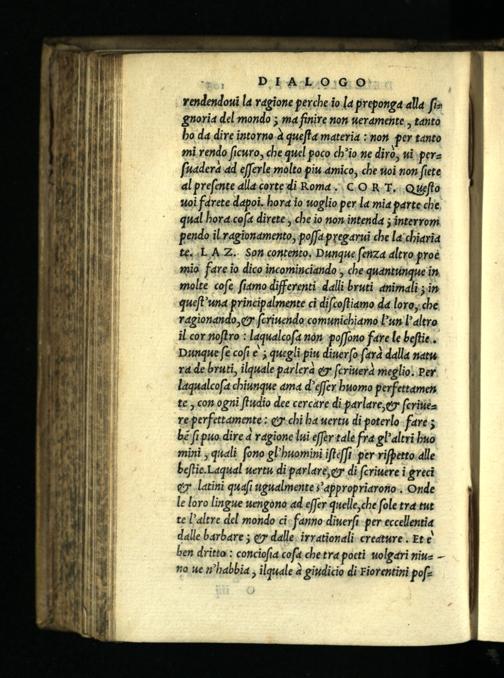 DIALOGO
rendendoui la ragione perche io la preponga alla si=
gnoria del mondo ; ma finire non ueramente , tanto
ho da dire intorno à questa materia : non per tanto
mi rendo sicuro, che quel poco ch'io ne dirò, ui per=
suaderà ad esserle molto piu amico, che uoi non siete
al presente alla corte di Roma . CORT. Questo
uoi farete dapoi. hora io uoglio per la mia parte che
qual hora cosa direte, che io non intenda ; interrom
pendo il ragionamento, possa pregarui che la chiaria
te. LAZ. Son contento. Dunque senza altro proe
mio fare io dico incominciando , che quantunque in
molte cose siamo differenti dalli bruti animali ; in
quest'una principalmente ci discostiamo da loro, che
ragionando,& scriuendo comunichiamo l'un l'altro
il cor nostro : laqualcosa non possono fare le bestie .
Dunque se cosi e ; quegli piu diuerso sarà dalla natu
ra de bruti, ilquale parlerà & scriuerà meglio. Per
laqualcosa chiunque ama d'esser huomo perfettamen
te , con ogni studio dee cercare di parlare,& scriue=
re perfettamente : & chi ha uertu di poterlo fare ;
bē si puo dire à ragione lui esser tale fra gl'altri huo
mini , quali sono gl'huomini istessi per rispetto alle
bestie.Laqual uertu di parlare,& di scriuere i greci
& latini quasi ugualmente s'appropriarono . Onde
le loro lingue uengono ad esser quelle,che sole tra tut
te l'altre del mondo ci fanno diuersi per eccellentia
dalle barbare ; & dalle irrationali creature . Et è
ben dritto : conciosia cosa che tra poeti uolgari niu=
no ue n'habbia , ilquale à giudicio di Fiorentini pos=
O iiij